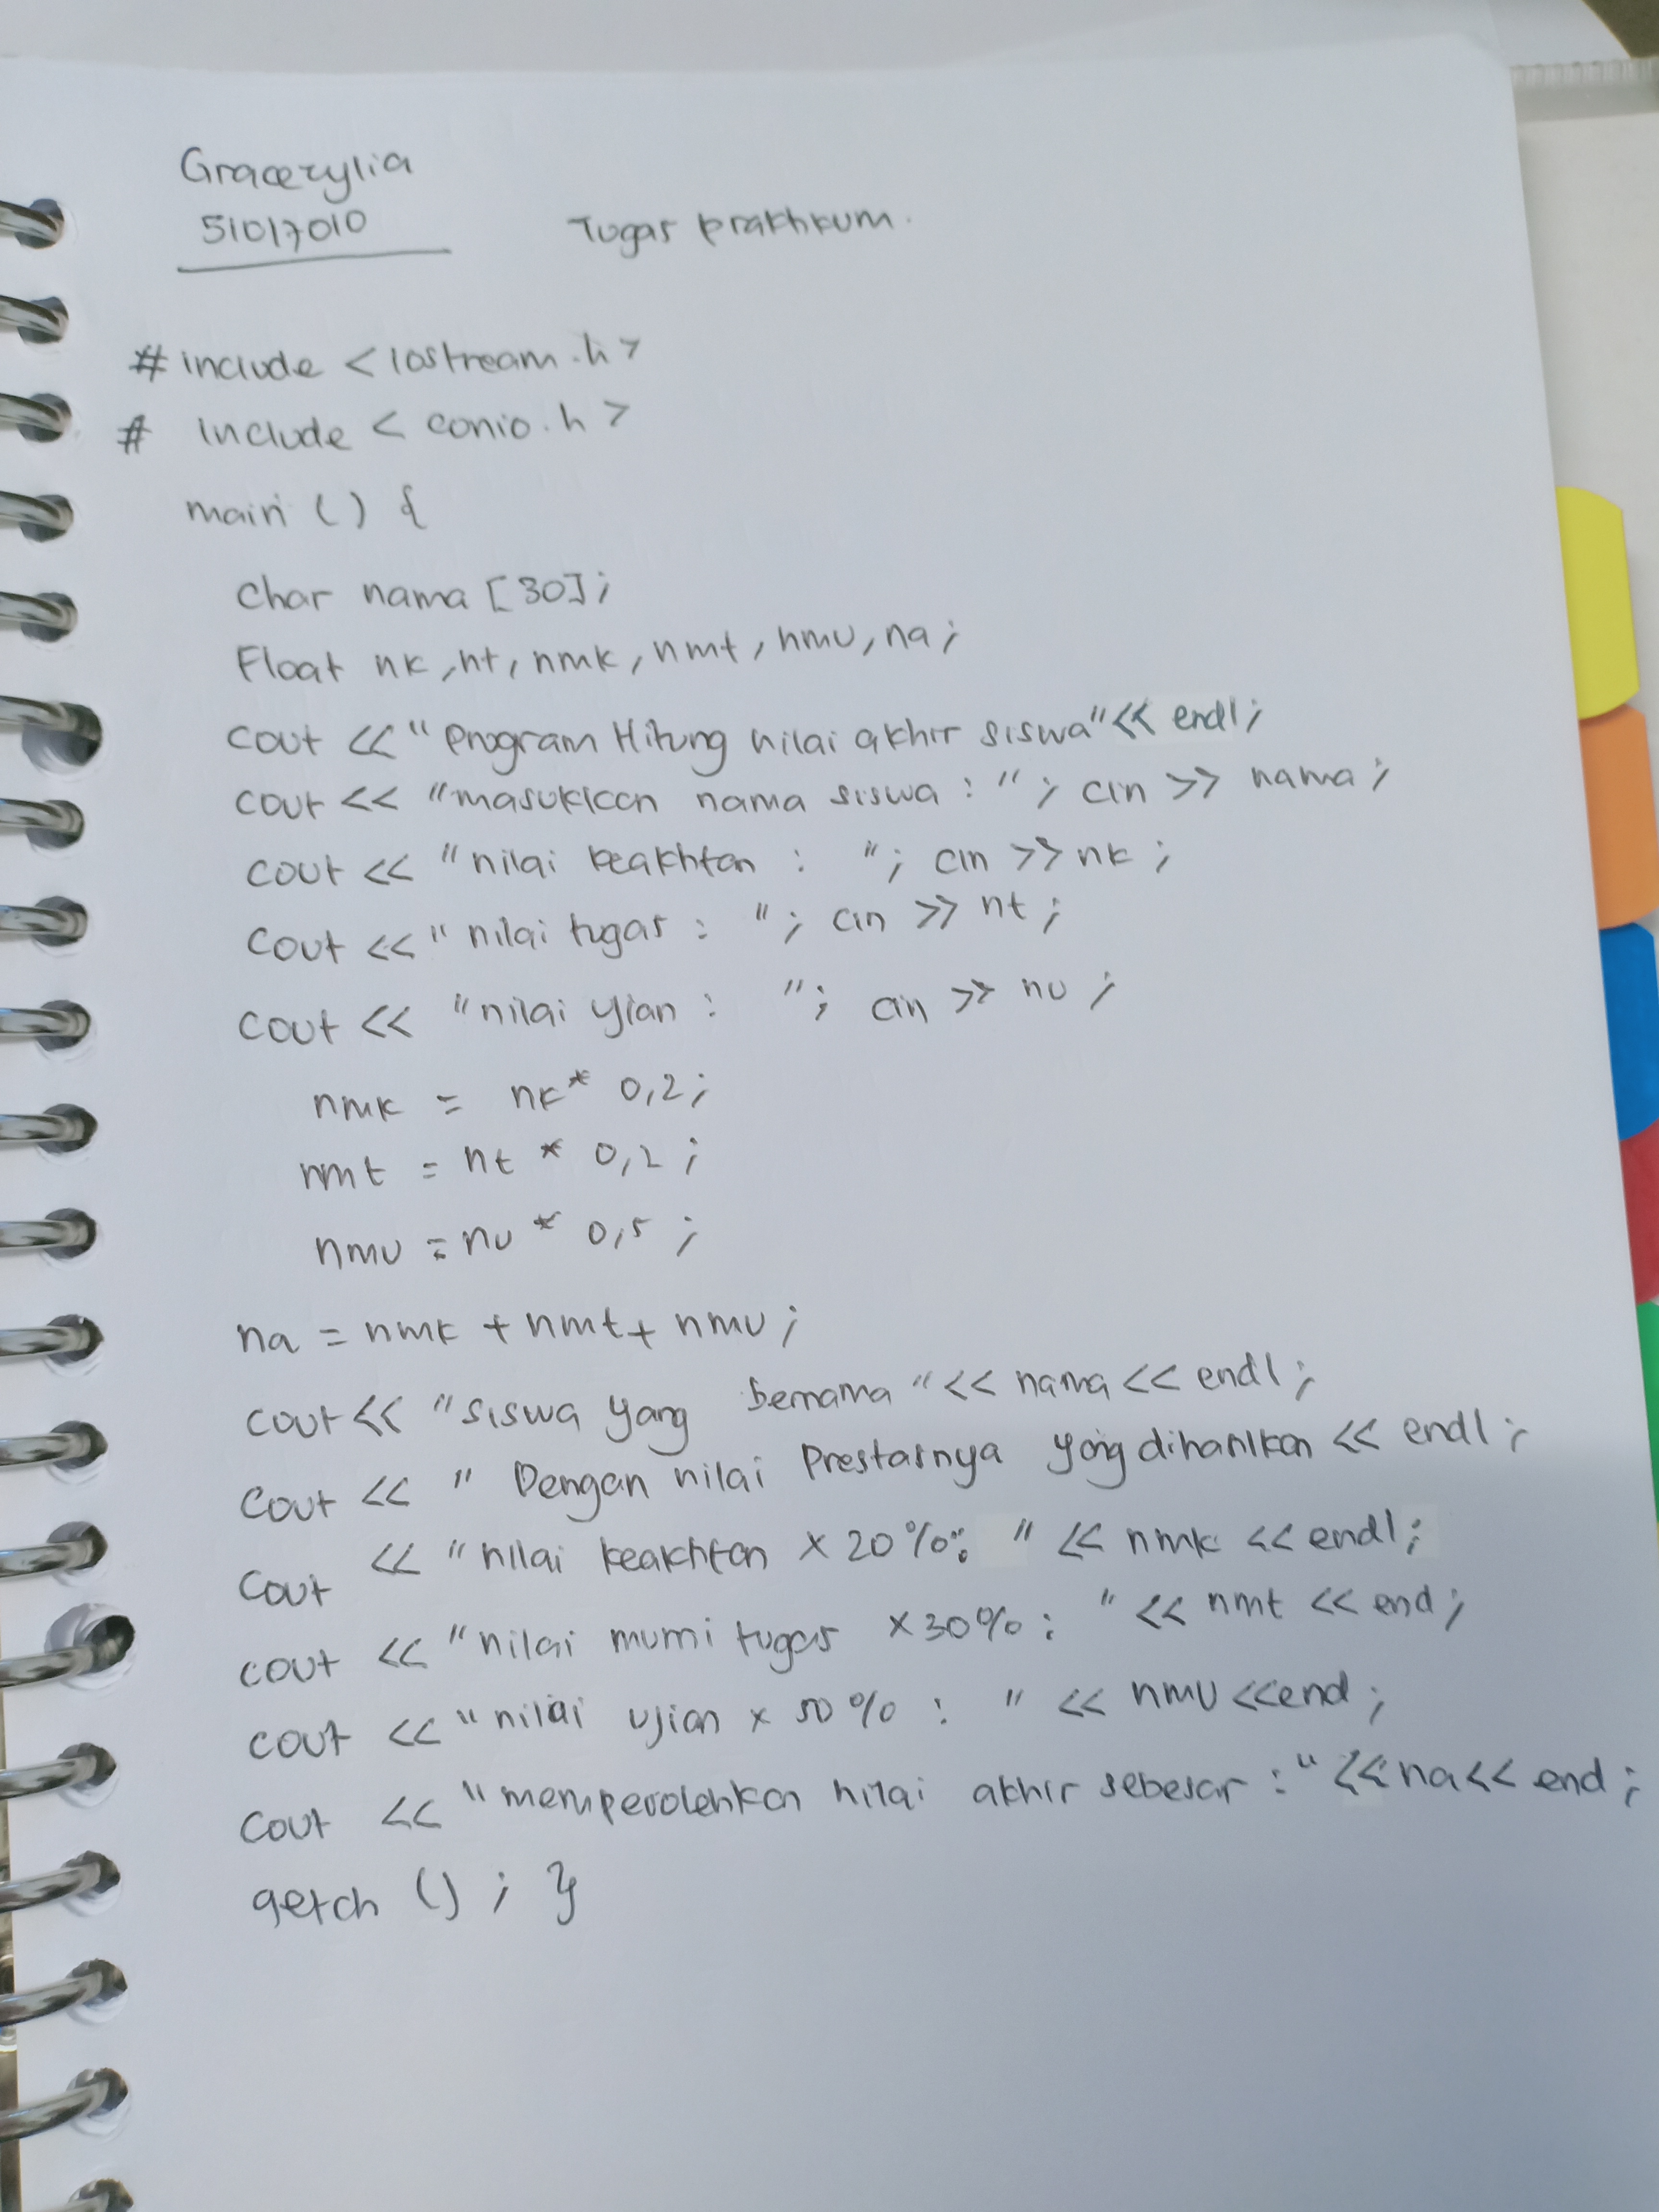 Gracezylia
51017010 Tugas praktikum.
#include <iostream.h>
# include < conio.h >
main () {
char nama [30];
Float nk, nt, nmk, nmt, nmu, na;
cout << "program Hitung nilai akhir siswa" << endl;
cout << "masukkan nama siswa : "; cin >> nama;
cout << "nilai keaktifan : "; cin >> nk;
cout << "nilai tugas : "; cin >> nt;
cout << "nilai ujian : "; cin >> nu;
nmk = nk * 0,2;
nmt = nt * 0,2;
nmu = nu * 0,5;
na = nmk + nmt + nmu;
cout << "siswa yang bernama " << nama << endl;
cout << " Dengan nilai Prestasnya yang dihasilkan << endl;
cout << "nilai keaktifan x 20%: " << nmk << endl;
cout << "nilai murni tugas x30% : " << nmt << end;
cout << "nilai ujian x 50% : " << nmu << end;
cout << "memperolehkan nilai akhir sebesar : " << na << end;
getch (); }